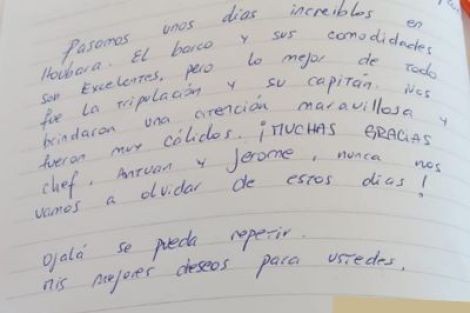 Pasamos unos días increibles en
Houbara. El barco y sus comodidades
son Excelentes, pero lo mejor de todo
fue la tripulación y su capitán. Nos
brindaron una atención maravillosa y
fueron muy cálidos. ¡MUCHAS GRACIAS
chef, Antuan y Jerome, nunca nos
vamos a olvidar de estos dias!
Ojalá se pueda repetir.
Mis mejores deseos para ustedes.